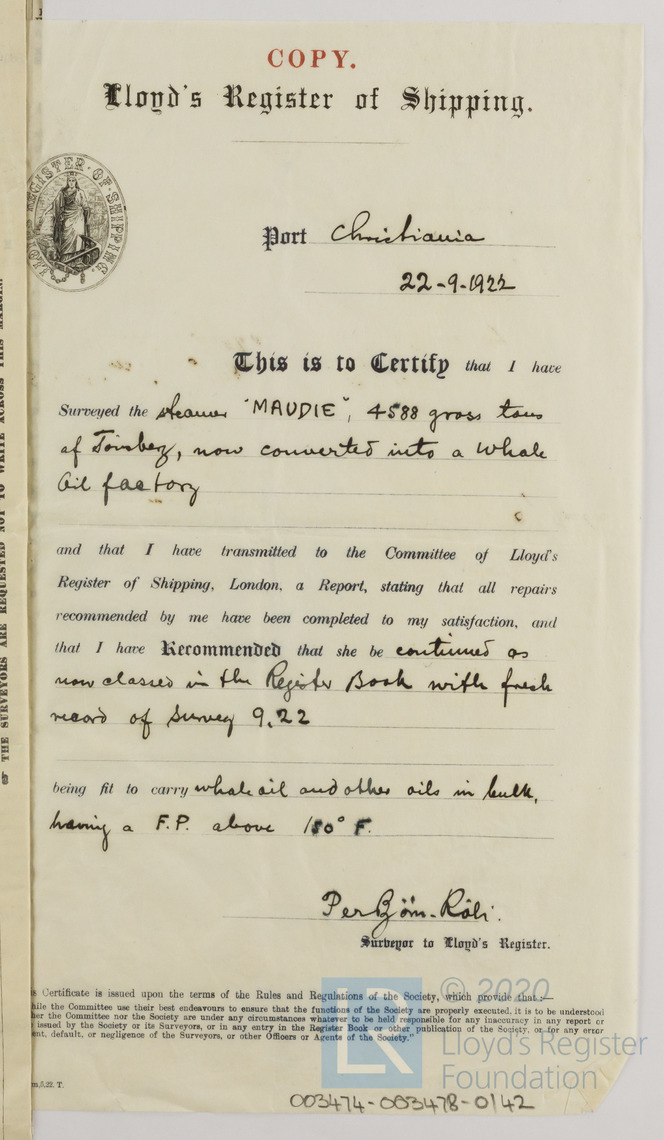 COPY.
Lloyd's Register of Shipping.
LLOYD'S REGISTER OF SHIPPING.
Port Christiania
22-9-1922
This is to Certify that I have
Surveyed the steamer "MAUDIE", 4588 gross tons
of Tönsberg, now converted into a Whale
Oil factory
and that I have transmitted to the Committee of Lloyd's
Register of Shipping, London, a Report, stating that all repairs
recommended by me have been completed to my satisfaction, and
that I have Recommended that she be continued as
now classed in the Register Book with fresh
record of Survey 9,22
being fit to carry whale oil and other oils in bulk,
having a F.P. above 150° F.
Per
Surveyor to Lloyd's Register.
Certificate is issued upon the terms of the Rules and Regulations of the Society, which provide that:—
hile the Committee use their best endeavours to ensure that the functions of the Society are properly executed, it is to be understood
her the Committee nor the Society are under any circumstances whatever to be held responsible for any inaccuracy in any report or
issued by the Society or its Surveyors, or in any entry in the Register Book or other publication of the Society, or for any error
ent, default, or negligence of the Surveyors, or other Officers or Agents of the Society."
m,5,22. T.
THE SURVEYORS ARE REQUESTED NOT TO WRITE ACROSS THIS MARGIN.
LR
© 2020
Lloyd's Register
Foundation
003474-003478-0142